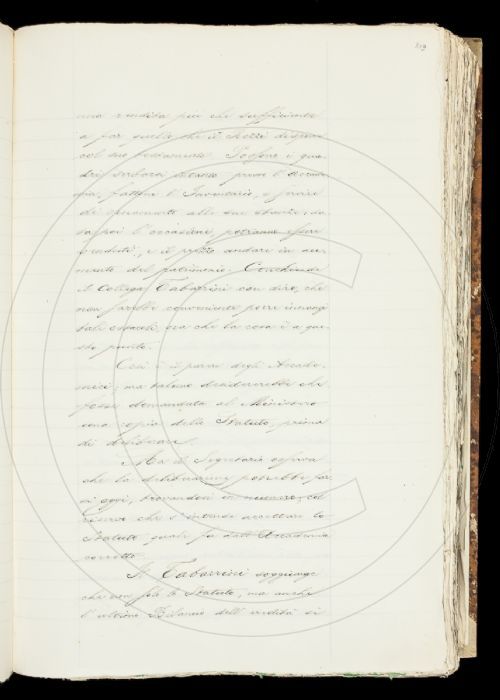 119
una rendita più che sufficiente
a far quello che il Chezzi dispone
col suo testamento. I qua-
dri presso l'Accade-
mia, fattone l'Inventario, e
di alle sue
poi l'occasione, potranno essere
venduti, e il prezzo andare in au-
mento del patrimonio. Conchiude
il Collega Tabarrini con dire, che
non sarebbe conveniente porre innanzi
tali ora che la cosa è a que-
sto punto.
Così è il parere degli Accade-
mici; ma taluno desidererebbe che
fosse domandata al Ministero
una copia dello Statuto, prima
di deliberare.
Ma il Segretario osserva
che la deliberazione potrebbe far-
si oggi, trovandoci in numero, col
riserva che s'intende accettare lo
Statuto quale fu dall'Accademia
corretto.
Il Tabarrini soggiunge
che non solo lo Statuto, ma anche
l'ultimo Bilancio dell'eredità si